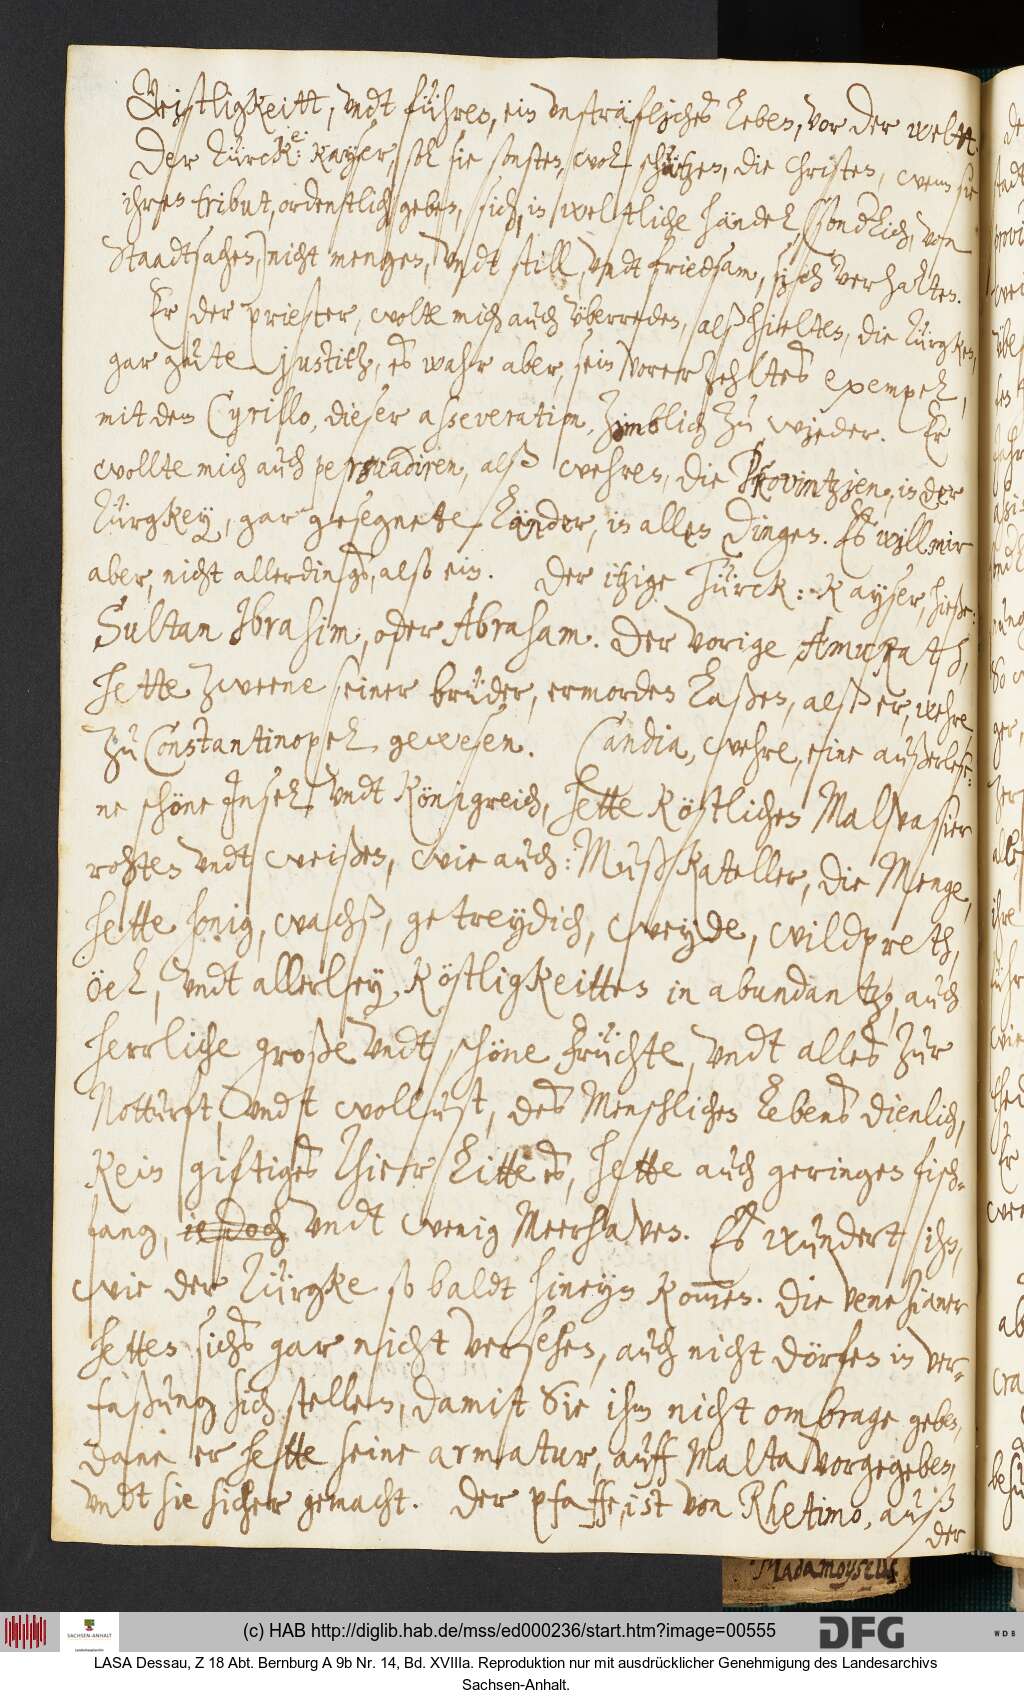 Geistligkeitt, undt führen, ein unsträfliches leben, vor der weltt.
Der Türck: Kayser, sol sie sonsten, wol schützen, die Christen, wenn sie
ihren tribut, ordentlich geben, sich, in weltliche händel, (sondlich, von
Staadtsachen,) nicht mengen, undt still, undt friedsam, sich verhalten.
Er der priester, wolte mich auch überreden, alß hielten, die Türgken,
gar gute justitz, es wahr aber, sein vorerzehltes exempel,
mit dem Cyrillo, dieser asseveration, zimblich zu wieder. Er
wollte mich auch persuadiren, alß wehren, die Provintzien, in der
Türgkey, gar gesegnete Länder, in allen dingen. Es will mir
aber, nicht allerdings, also ein. Der itzige Türck: Kayser, hieße:
Sultan Ibrahim, oder Abraham. Der vorige Amurath,
hette zweene seiner brüder, ermorden laßen, alß er, wehre
zu Constantinopel gewesen. Candia, wehre, eine außerlese-
ne schöne Insel, undt Königreich, hette köstlichen Malvasier
rohten undt weißen, wie auch: Mußkateller, die Menge,
hette honig, wachß, getreydich, weyde, wildpreth,
öel, undt allerley köstligkeitten in abundantz, auch
herrliche große undt schöne früchte, undt alles zur
Notturft, undt wollust, des Menschlichen Lebens dienlich,
Kein giftiges Thier litte es, hette auch geringen fisch-
fang, iedoch undt wenig Meerhaven. Es wundert ihn,
wie der Türgke so baldt hineyn kommen. Die Venetzianer
hetten sichs gar nicht versehen, auch nicht dörfen in ver-
faßung sich stellen, damit Sie ihm nicht ombrage geben,
dann er hette seine armatur, auff Malta vorgegeben,
undt sie sicher gemacht. Der pfaffe, ist von Rhetimo, auß
der
Madamoyselle
(c) HAB http://diglib.hab.de/mss/ed000236/start.htm?image=00555
SACHSEN-ANHALT
DFG
WDB
LASA Dessau, Z 18 Abt. Bernburg A 9b Nr. 14, Bd. XVIIIa. Reproduktion nur mit ausdrücklicher Genehmigung des Landesarchivs
Sachsen-Anhalt.